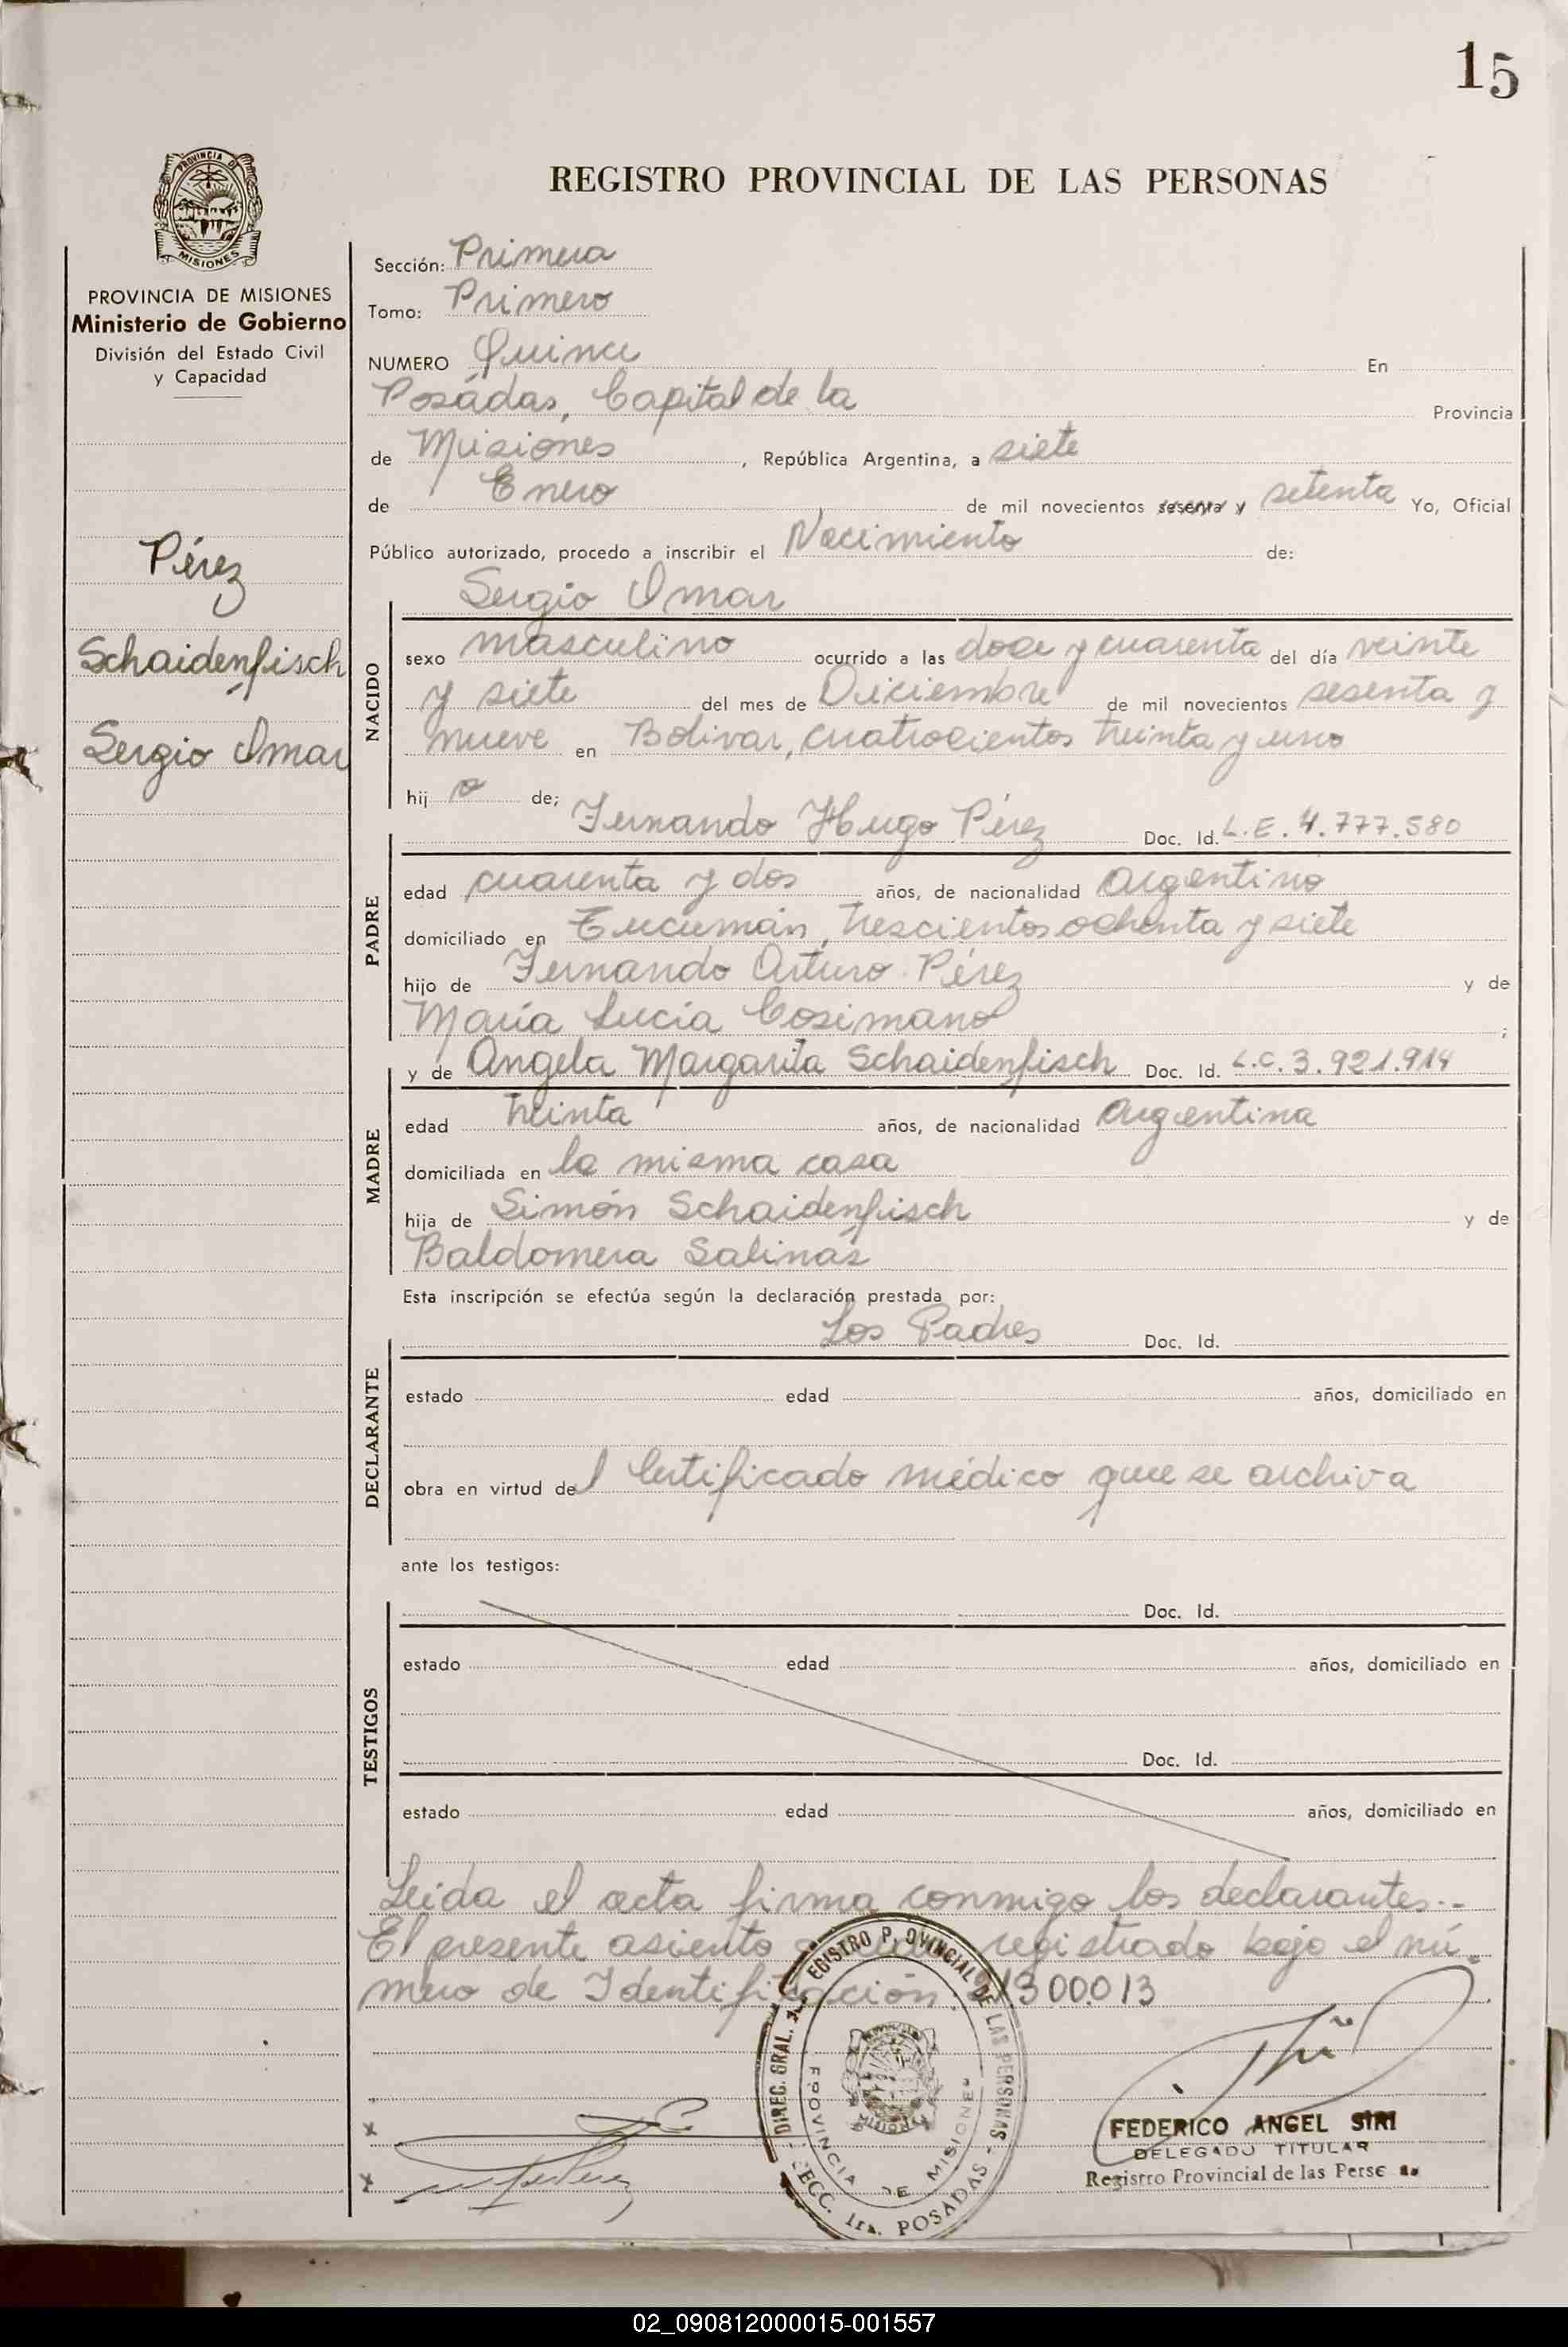 15
PROVINCIA DE
MISIONES
REGISTRO PROVINCIAL DE LAS PERSONAS
PROVINCIA DE MISIONES
Ministerio de Gobierno
División del Estado Civil
y Capacidad
Pérez
Schaidenfisch
Sergio Omar
Sección: Primera
Tomo: Primero
NUMERO Quince En
Posadas, Capital de la Provincia
de Misiones, República Argentina, a siete
de Enero de mil novecientos sesenta y setenta Yo, Oficial
Público autorizado, procedo a inscribir el Nacimiento de:
Sergio Omar
NACIDO
sexo masculino ocurrido a las doce y cuarenta del día veinte
y siete del mes de Diciembre de mil novecientos sesenta y
nueve en Bolivar, cuatrocientos treinta y uno
hijo de;
Fernando Hugo Pérez Doc. Id. L.E. 4.777.580
PADRE
edad cuarenta y dos años, de nacionalidad Argentino
domiciliado en Tucumán, trescientos ochenta y siete
hijo de Fernando Arturo Pérez y de
María Lucía Cosimano ;
y de Angela Margarita Schaidenfisch Doc. Id. L.C. 3.921.914
MADRE
edad treinta años, de nacionalidad Argentina
domiciliada en la misma casa
hija de Simón Schaidenfisch y de
Baldomera Salinas
Esta inscripción se efectúa según la declaración prestada por:
Los Padres Doc. Id.
DECLARANTE
estado edad años, domiciliado en
obra en virtud del Certificado médico que se archiva
ante los testigos:
Doc. Id.
TESTIGOS
estado edad años, domiciliado en
Doc. Id.
estado edad años, domiciliado en
Leída el acta firma conmigo los declarantes.-
El presente asiento registrado bajo el nú-
mero de Identificación: 21300.013
DIREC. GRAL. REGISTRO PROVINCIAL DE LAS PERSONAS - SECC. 1ra. POSADAS -
PROVINCIA DE MISIONES
FEDERICO ANGEL SIRI
DELEGADO TITULAR
Registro Provincial de las Personas
02_090812000015-001557